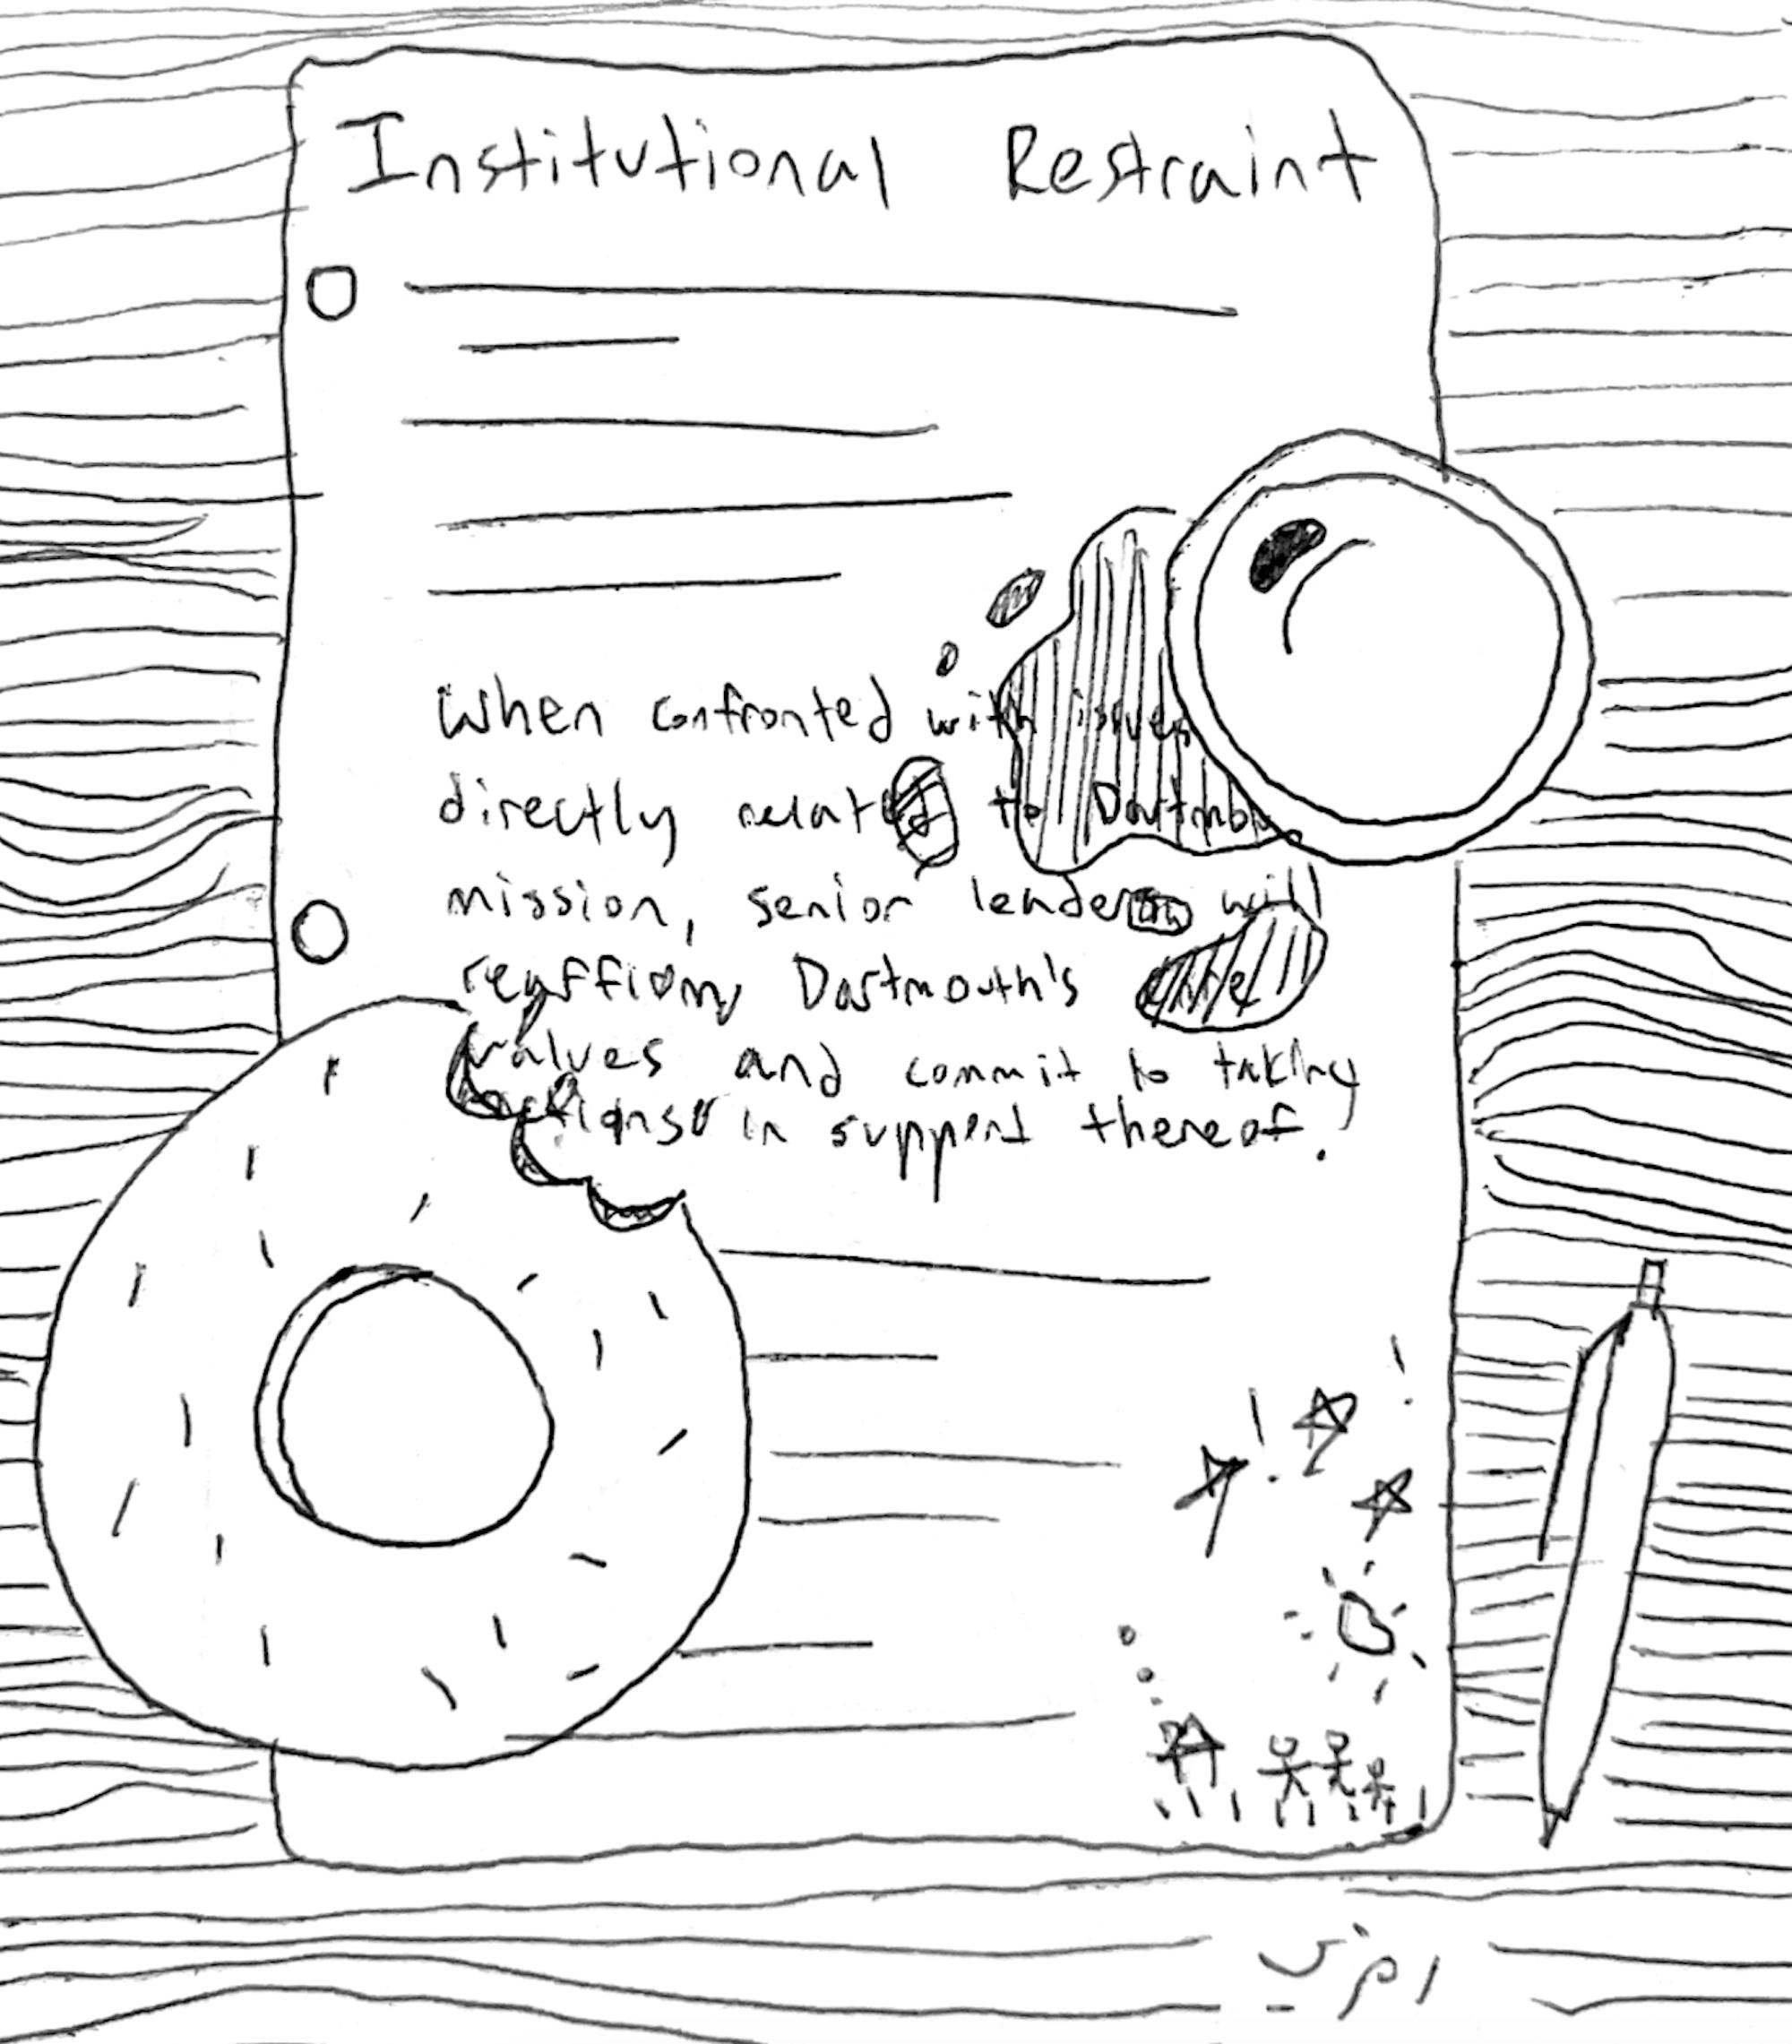 Institutional Restraint
When confronted with issues
directly related to Dartmou
mission, senior leaders will
reaffirm Dartmouth's core
values and commit to taking
actions in support thereof.